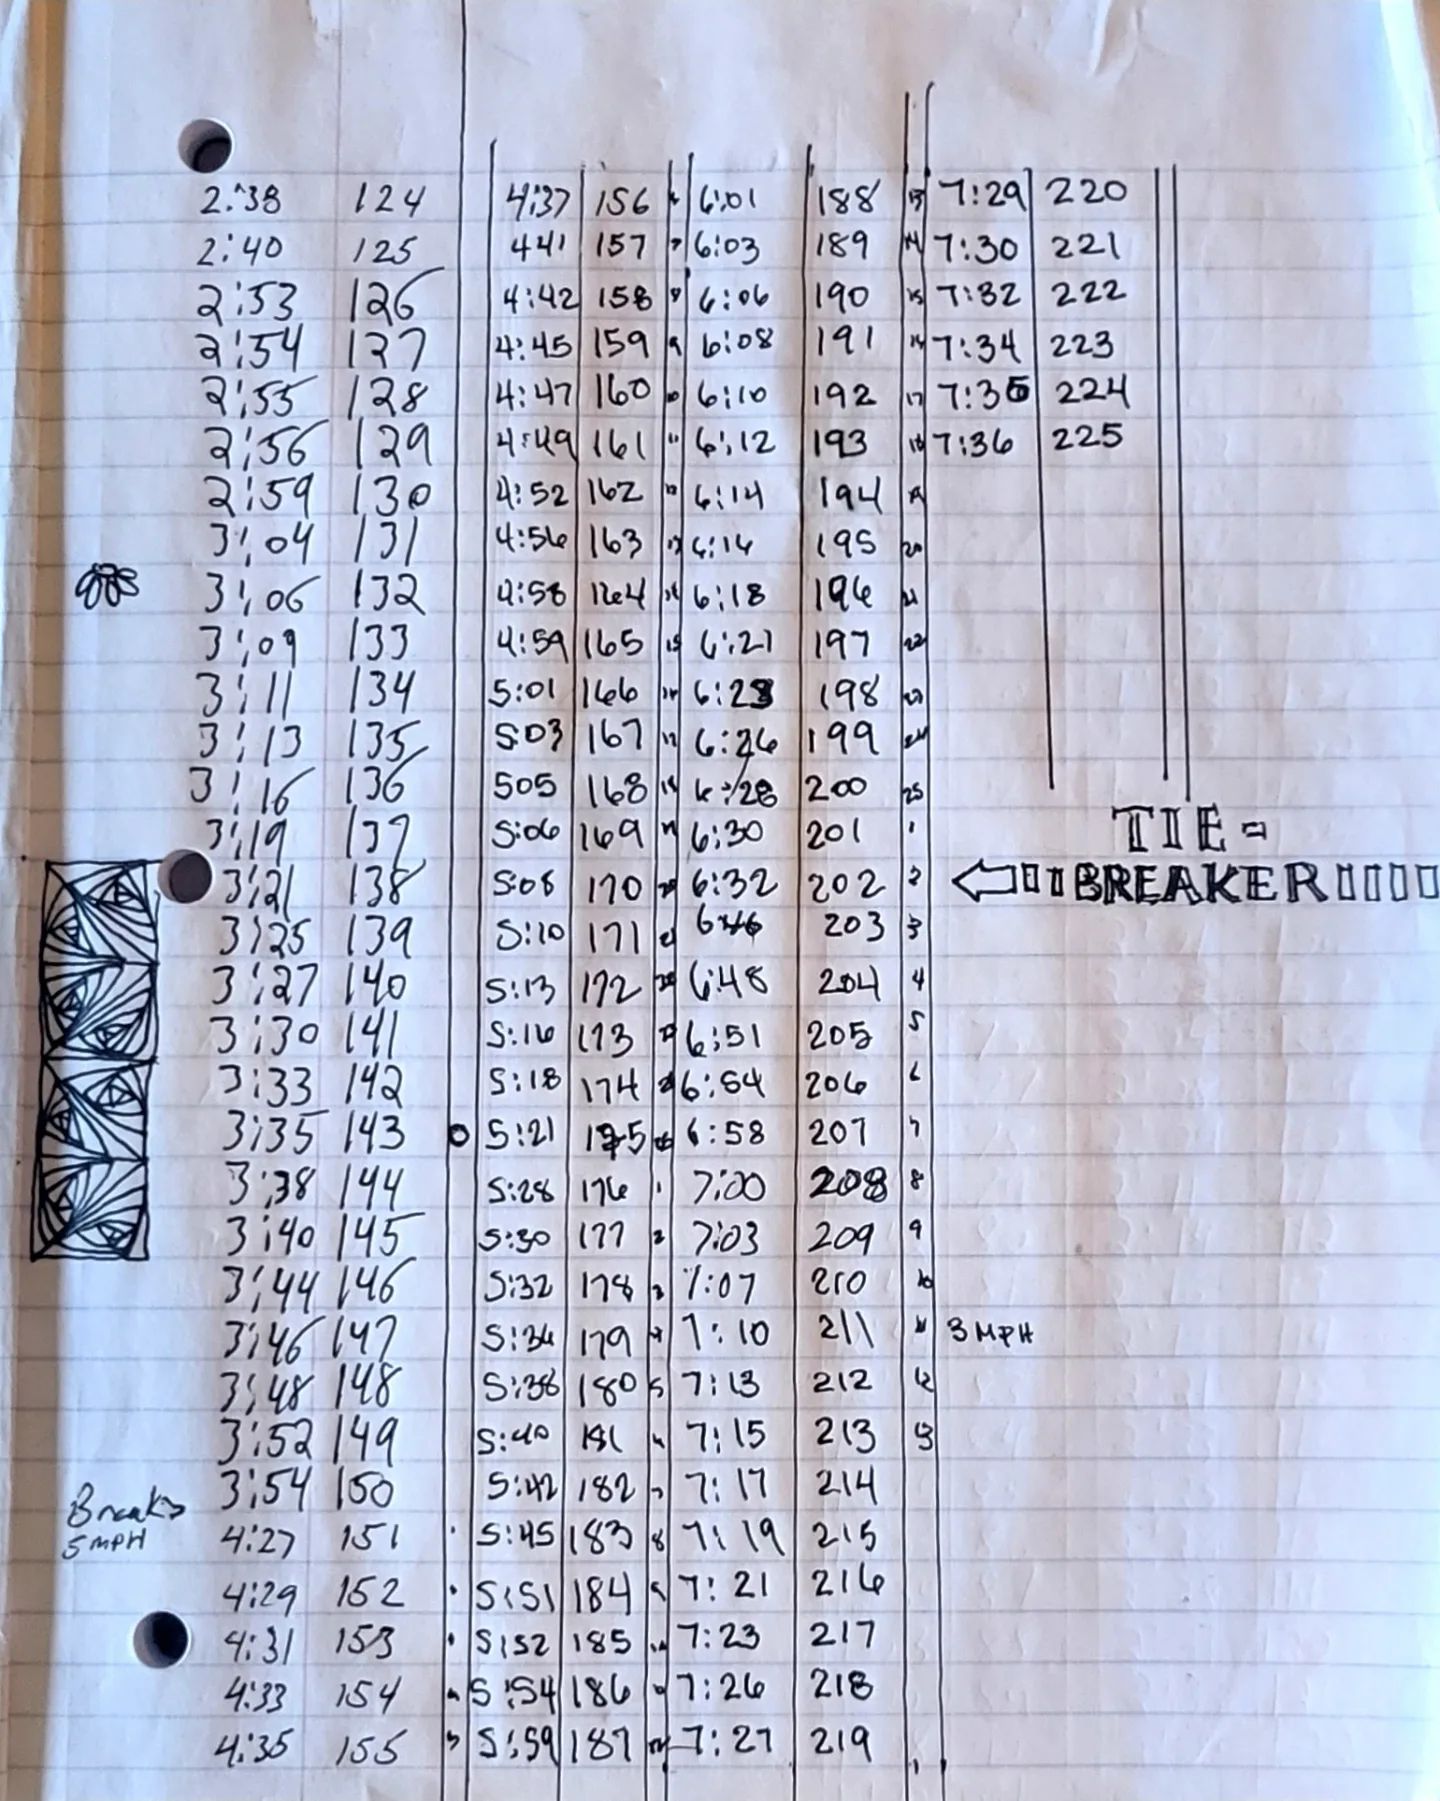 2:38 124 4:37 156 6:01 188 13 7:29 220
2:40 125 441 157 7 6:03 189 14 7:30 221
2:53 126 4:42 158 8 6:06 190 15 7:32 222
2:54 127 4:45 159 9 6:08 191 16 7:34 223
2:55 128 4:47 160 10 6:10 192 17 7:35 224
2:56 129 4:49 161 11 6:12 193 18 7:36 225
2:59 130 4:52 162 12 6:14 194 19
3:04 131 4:56 163 13 6:16 195 20
3:06 132 4:58 164 14 6:18 196 21
3:09 133 4:59 165 15 6:21 197 22
3:11 134 5:01 166 16 6:23 198 23
3:13 135 5:03 167 17 6:26 199 24
3:16 136 505 168 18 6:28 200 25
3:19 137 5:06 169 19 6:30 201 1 TIE-
3:21 138 5:08 170 20 6:32 202 2 BREAKER
3:25 139 5:10 171 21 203 3
3:27 140 5:13 172 22 6:48 204 4
3:30 141 5:16 173 23 6:51 205 5
3:33 142 5:18 174 24 6:54 206 6
3:35 143 5:21 175 25 6:58 207 7
3:38 144 5:28 176 1 7:00 208 8
3:40 145 5:30 177 2 7:03 209 9
3:44 146 5:32 178 3 7:07 210 10
3:46 147 5:36 179 4 7:10 211 11 3 MPH
3:48 148 5:38 180 5 7:13 212 12
3:52 149 5:40 181 6 7:15 213 13
3:54 150 5:42 182 7 7:17 214
Break 5 MPH
4:27 151 5:45 183 8 7:19 215
4:29 152 5:51 184 9 7:21 216
4:31 153 5:52 185 10 7:23 217
4:33 154 5:54 186 7:26 218
4:35 155 5:59 187 12 7:27 219